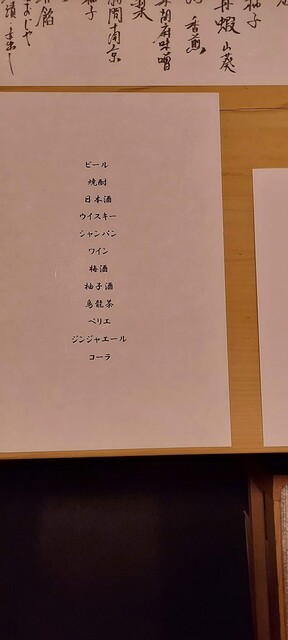 柚子
蝦 山葵
香煎
胡麻味噌
南京
柚子
ビール
焼酎
日本酒
ウイスキー
シャンパン
ワイン
梅酒
柚子酒
烏龍茶
ペリエ
ジンジャエール
コーラ